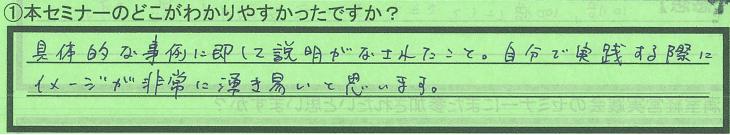 ①本セミナーのどこがわかりやすかったですか？
具体的な事例に即して説明がなされたこと。自分で実践する際に
イメージが非常に湧き易いと思います。